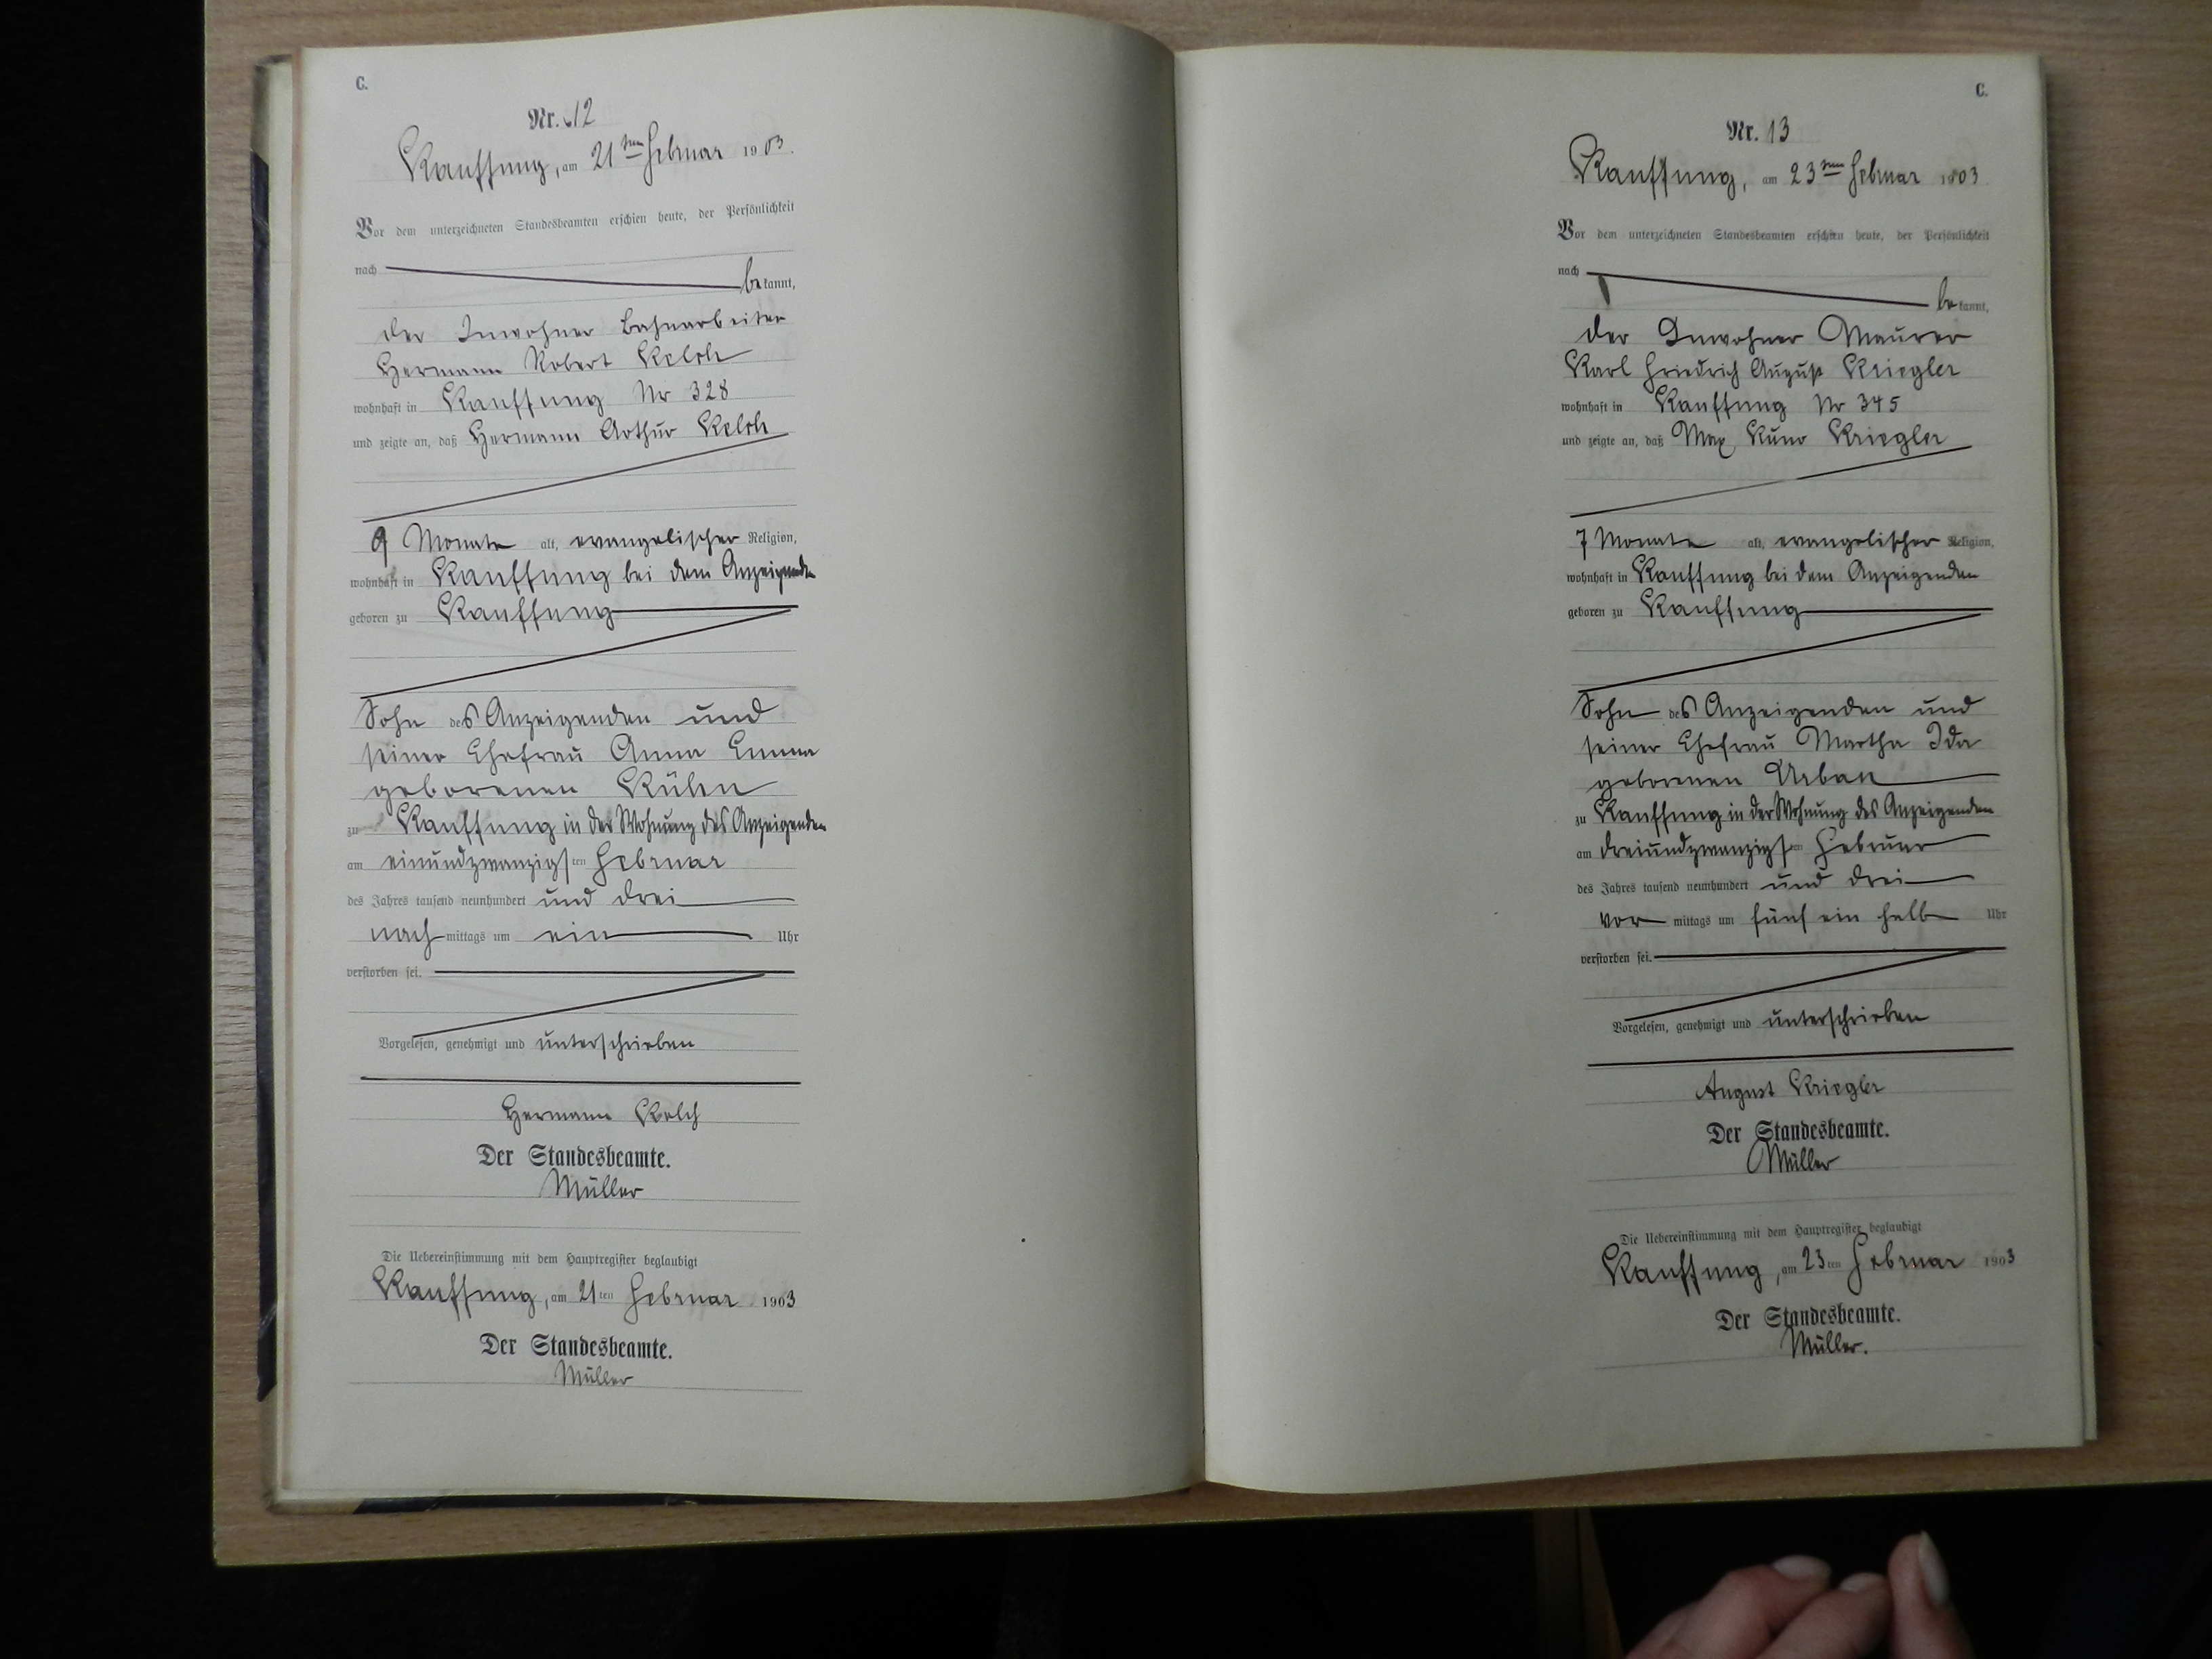 C.
Nr. 12
Kauffung, am 21ten Februar 1903.
Vor dem unterzeichneten Standesbeamten erschien heute, der Persönlichkeit
nach
bekannt,
der Inwohner Bahnarbeiter
Hermann Robert Kelch
wohnhaft in Kauffung Nr 328
und zeigte an, daß Hermann Arthur Kelch
9 Monate alt, evangelischer Religion,
wohnhaft in Kauffung bei dem Anzeigenden
geboren zu Kauffung
Sohn des Anzeigenden und
seiner Ehefrau Anna Emma
geborenen
zu Kauffung in der Wohnung des Anzeigenden
am einundzwanzigsten Februar
des Jahres tausend neunhundert und drei
nachmittags um ein Uhr
verstorben sei.
Vorgelesen, genehmigt und unterschrieben
Hermann Kelch
Der Standesbeamte.
Müller
Die Uebereinstimmung mit dem Hauptregister beglaubigt
Kauffung, am 21ten Februar 1903
Der Standesbeamte.
Müller
C.
Nr. 13
Kauffung, am 23ten Februar 1903
Vor dem unterzeichneten Standesbeamten erschien heute, der Persönlichkeit
nach
bekannt,
der Inwohner Maurer
Karl Friedrich August Kriegler
wohnhaft in Kauffung Nr 345
und zeigte an, daß Max Kuno Kriegler
7 Monate alt, evangelischer Religion,
wohnhaft in Kauffung bei dem Anzeigenden
geboren zu Kauffung
Sohn des Anzeigenden und
seiner Ehefrau Martha Ida
geborenen Urban
zu Kauffung in der Wohnung des Anzeigenden
am dreiundzwanzigsten Februar
des Jahres tausend neunhundert und drei
vormittags um fünf ein halb Uhr
verstorben sei.
Vorgelesen, genehmigt und unterschrieben
August Kriegler
Der Standesbeamte.
Müller
Die Uebereinstimmung mit dem Hauptregister beglaubigt
Kauffung, am 23ten Februar 1903
Der Standesbeamte.
Müller.